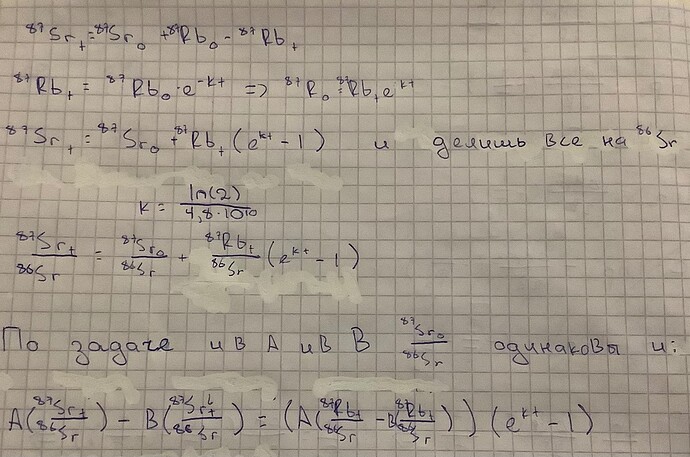 ⁸⁷Sr_t = ⁸⁷Sr₀ + ⁸⁷Rb₀ - ⁸⁷Rb_t
⁸⁷Rb_t = ⁸⁷Rb₀ · e^{-kt} => ⁸⁷R₀ = ⁸⁷Rb_t e^{kt}
⁸⁷Sr_t = ⁸⁷Sr₀ + ⁸⁷Rb_t (e^{kt} - 1) и делишь все на ⁸⁶Sr
k = ln(2) / 4,8 · 10¹⁰
⁸⁷Sr_t / ⁸⁶Sr = ⁸⁷Sr₀ / ⁸⁶Sr + ⁸⁷Rb_t / ⁸⁶Sr (e^{kt} - 1)
По задаче и в А и в В ⁸⁷Sr₀ / ⁸⁶Sr одинаковы и:
A(⁸⁷Sr_t / ⁸⁶Sr) - B(⁸⁷Sr_t / ⁸⁶Sr) = (A(⁸⁷Rb_t / ⁸⁶Sr - B(⁸⁷Rb_t / ⁸⁶Sr)) (e^{kt} - 1)